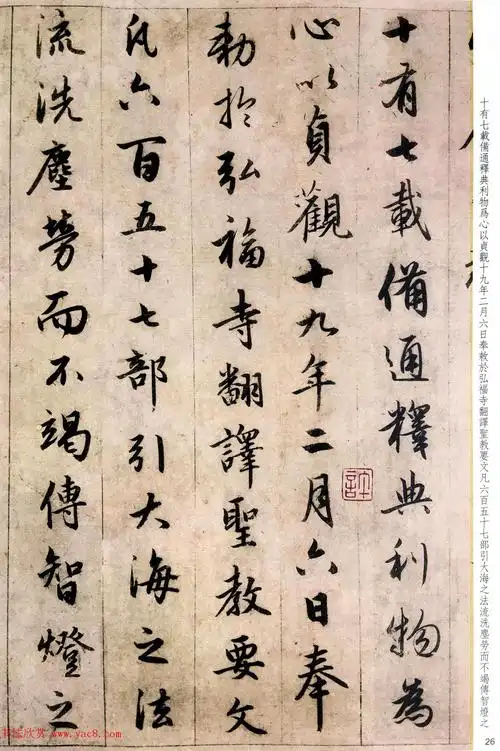 十有七載備通釋典利物為
心以貞觀十九年二月六日奉
勅於弘福寺翻譯聖教要文
凡六百五十七部引大海之法
流洗塵勞而不竭傳智燈之
十有七載備通釋典利物爲心以貞觀十九年二月六日奉敕於弘福寺翻譯聖教要文凡六百五十七部引大海之法流洗塵勞而不竭傳智燈之
書法欣賞 www.yac8.com
26